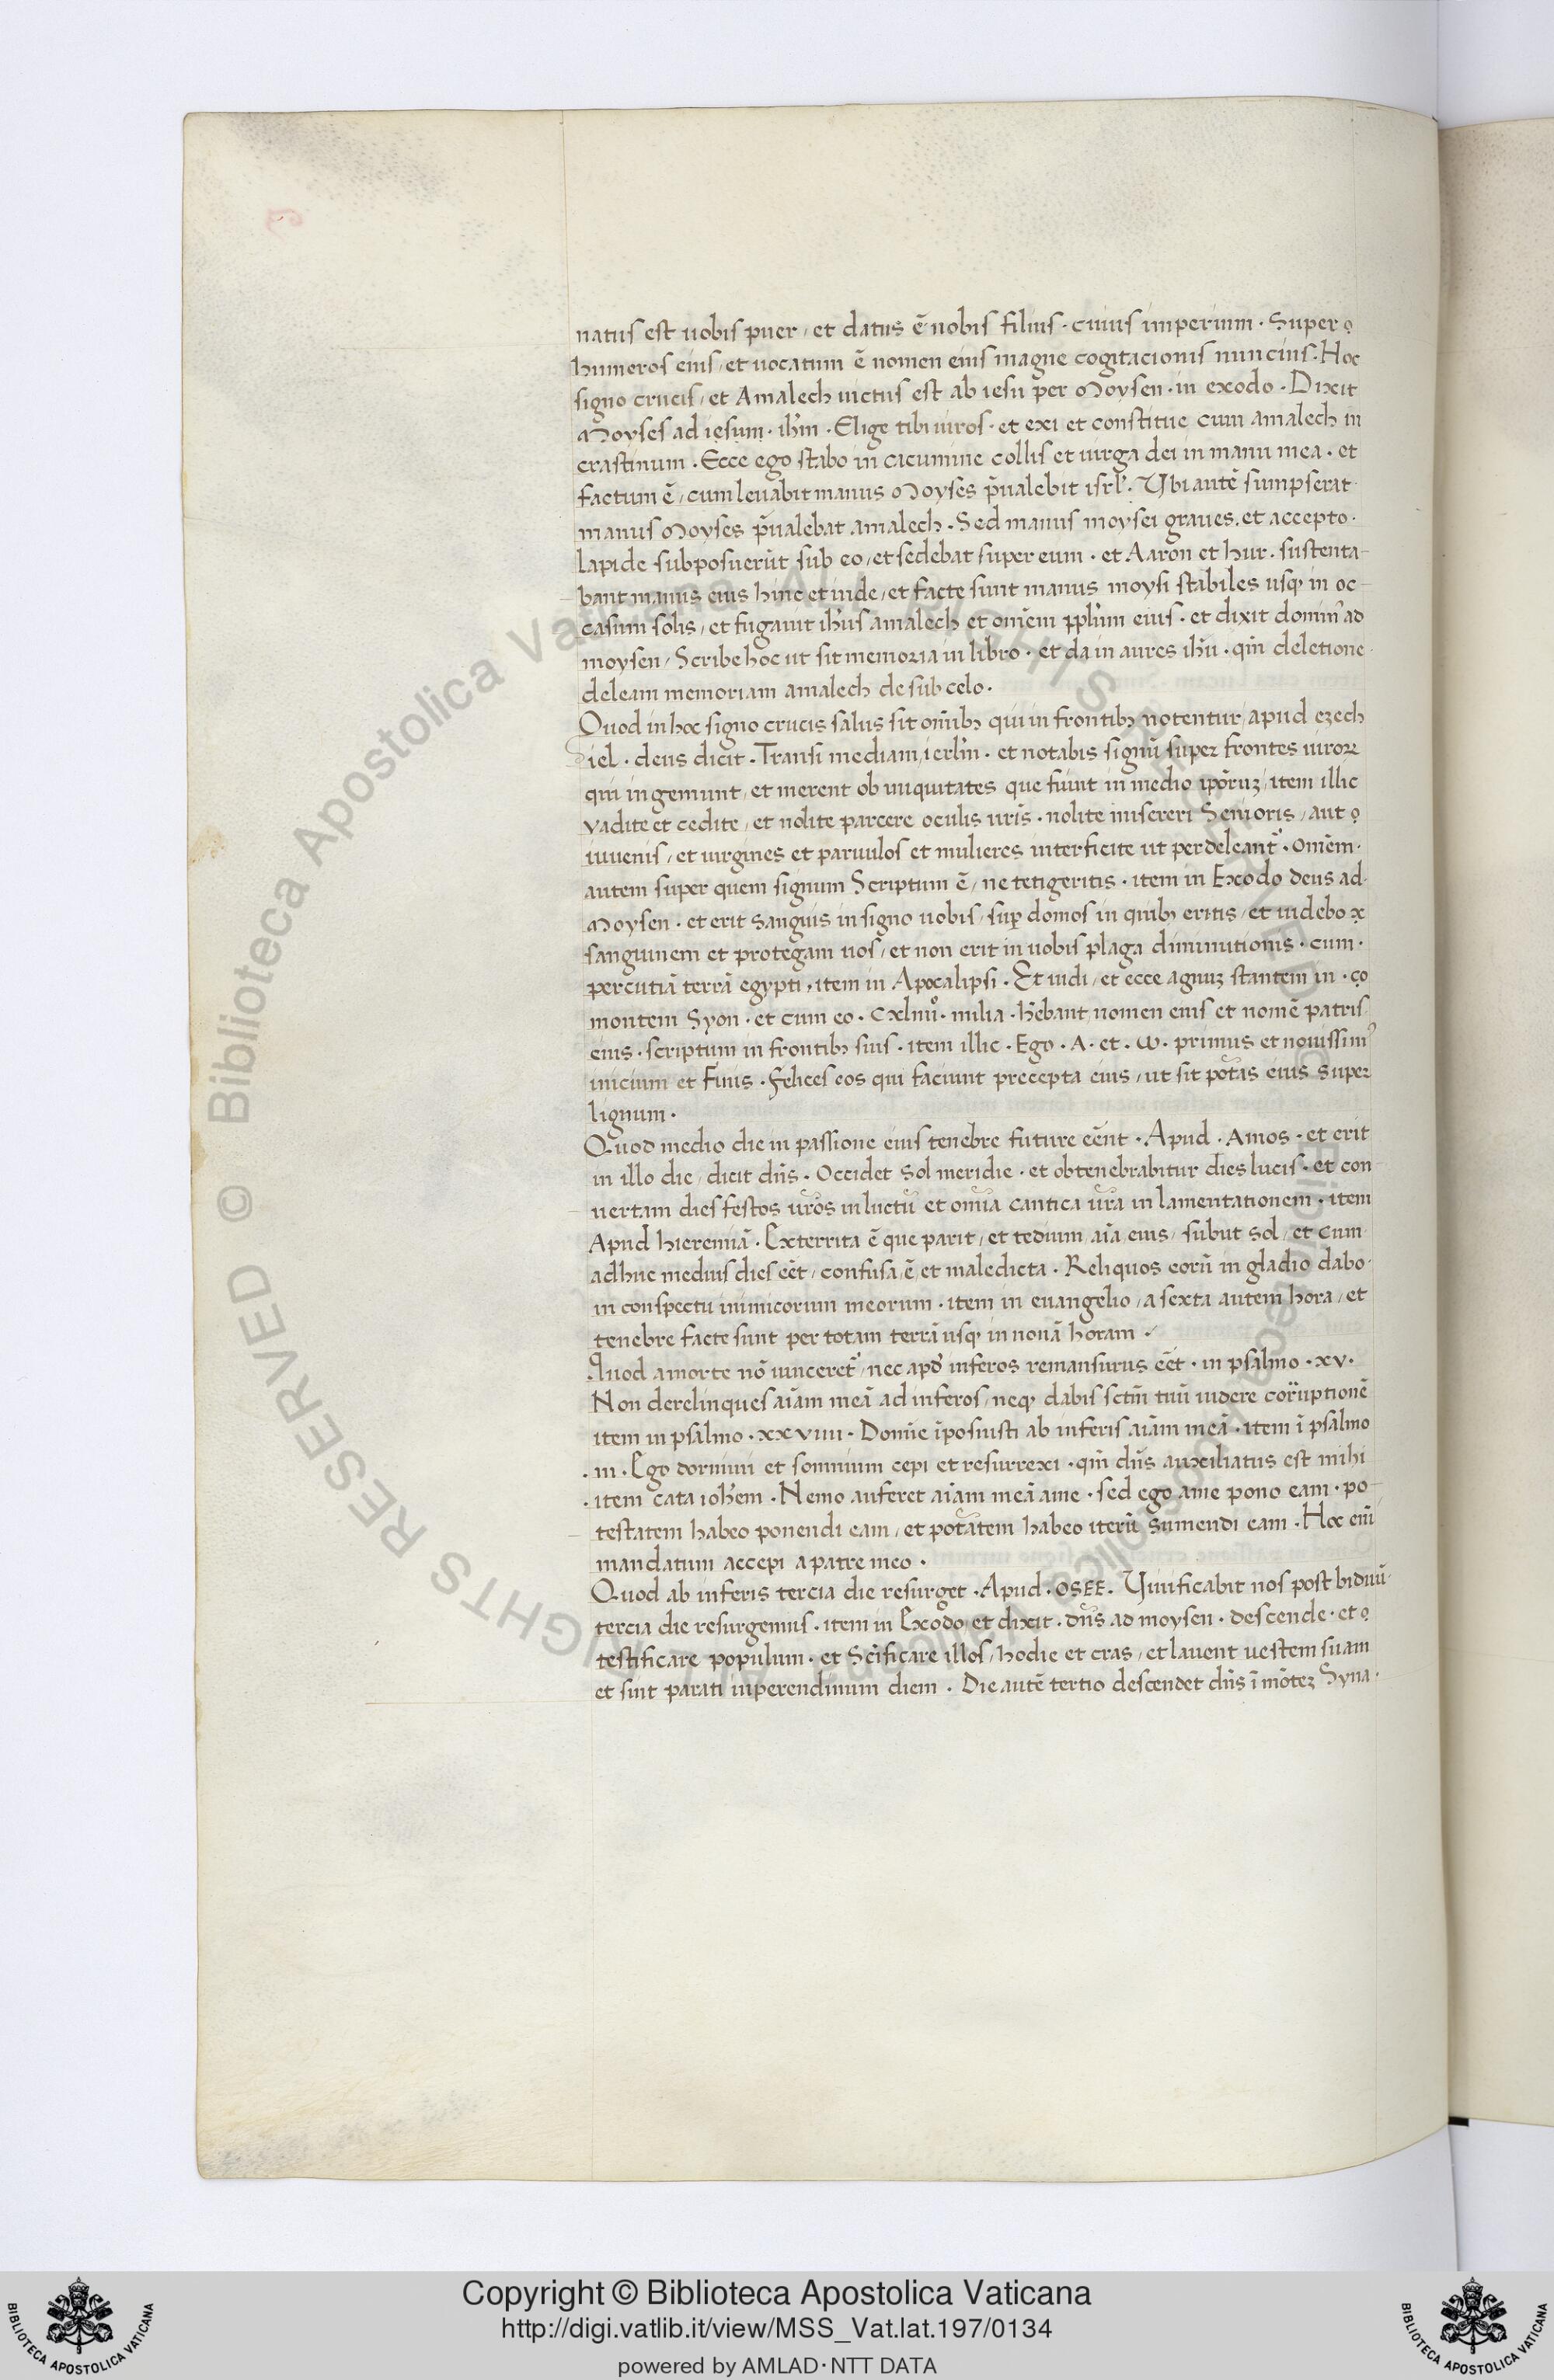 natus est uobis puer / et datus ē nobis filius · cuius imperium · Super
humeros eius / et uocatum ē nomen eius magne cogitacionis nuncius · Hoc
signo crucis / et Amalech uictus est ab iesu per Moysen · in exodo · Dixit
Moyses ad iesum · ihm̄ · Elige tibi uiros · et exi et constitue cum amalech in
crastinum · Ecce ego stabo in cacumine collis et uirga dei in manu mea · et
factum ē / cum leuabit manus Moyses p̄ualebit isrl̄ · Ubi autē sumpserat
manus Moyses p̄ualebat amalech · Sed manus moysei graues · et accepto ·
lapide subposuerūt sub eo / et sedebat super eum · et Aaron et hur · sustenta-
bant manus eius hinc et inde / et facte sunt manus moysi stabiles usq; in oc-
casum solis / et fugauit ihūs amalech et omēm pplūm eius · et dixit domin᾽ ad
moysen / Scribe hoc ut sit memoria in libro · et da in aures ihū · qm̄ deletione ·
deleam memoriam amalech de sub celo ·
Quod in hoc signo crucis salus sit omībꝫ qui in frontibꝫ notentur / apud ezech
iel · deus dicit · Transi mediam ierlm̄ · et notabis signū super frontes uiroꝝ
qui ingemunt / et merent ob iniquitates que fiunt in medio ipōruꝫ / item illic
vadite et cedite / et nolite parcere oculis uris̄ · nolite misereri Senioris / aut
iuuenis / et uirgines et paruulos et mulieres interficite ut perdeleant᾽ · omēm ·
autem super quem signum Scriptum ē / ne tetigeritis · item in Exodo deus ad ·
Moysen · et erit sanguis in signo uobis / sup̄ domos in quibꝫ eritis / et uidebo
sanguinem et protegam uos / et non erit in uobis plaga diminutionis · cum ·
percutiā terrā egypti, item in Apocalipsi · Et uidi / et ecce agnuꝫ stantem in ·
montem Syon · et cum eo · Cxlııııͦ · milia · hēbant nomen eius et nomē patris
eius · scriptum in frontibꝫ suis · item illic · Ego · A · et · ω · primus et nouissim᾽
inicium et Finis · felices eos qui faciunt precepta eius / ut sit potās eius super
lignum ·
Quod medio die in passione eius tenebre future eēnt · Apud · Amos · et erit
in illo die / dicit dn̄s · Occidet Sol meridie · et obtenebrabitur dies lucis · et con
uertam dies festos urōs in luctū et omīa cantica urā in lamentationem · item
Apud hieremiā · Exterrita ē que parit / et tedium aīa eius / subiit sol / et cum
adhuc medius dies eēt / confusa ē et maledicta · Reliquos eorū in gladio dabo ·
in conspectu inimicorum meorum · item in euangelio / a sexta autem hora / et
tenebre facte sunt per totam terrā usq; in nonā horam ·
Quod a morte nō uinceret᾽ / nec apd̄ inferos remansurus eēt · in psalmo · xv ·
Non derelinques aīam meā ad inferos / neq; dabis sctm̄ tuū uidere corruptionē
item in psalmo · xxviiii · Domīe īposuisti ab inferis aīam meā · item ī psalmo
· iii · Ego dormiui et somnium cepi et resurrexi · qm̄ dn̄s auxiliatus est mihi
· item cata ioh̄em · Nemo auferet aīam meā a me · sed ego a me pono eam · po-
testatem habeo ponendi eam / et potātem habeo iterū sumendi eam · Hoc eni̅
mandatum accepi a patre meo ·
Quod ab inferis tercia die resurget · Apud · OSEE · Uiuificabit nos post biduū ·
tercia die resurgemus · item in Exodo et dixit · dn̄s ad moysen · descende · et
testificare populum · et Scīficare illos / hodie et cras / et lauent uestem suam
et sint parati inperendinum diem · Die autē tertio descendet dn̄s ī mōteꝫ Syna ·
© Biblioteca Apostolica Vaticana ALL RIGHTS RESERVED
Copyright © Biblioteca Apostolica Vaticana
http://digi.vatlib.it/view/MSS_Vat.lat.197/0134
powered by AMLAD·NTT DATA
BIBLIOTECA APOSTOLICA VATICANA
BIBLIOTECA APOSTOLICA VATICANA